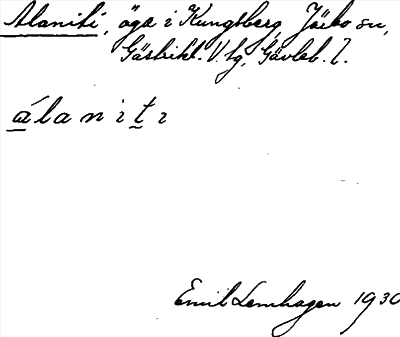 Alaniti, äga i Kungsberg Järbo sn,
Gästrikl. V. tg, Gävleb. l.
álaniti
Emil Lemhagen 1930